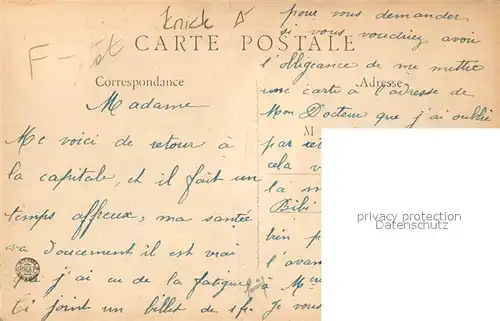 Knick
F - Rat
CARTE POSTALE
Correspondance
Adresse
Madame
Me voici de retour à
la capitale, et il fait un
temps affreux, ma santée
va doucement il est vrai
j'ai eu de la fatigue
Ci joint un billet de 5 fr.
pour vous demander
si vous voudriez avoir
l'obligeance de me mettre
une carte à l'adresse de
Mon Docteur que j'ai oublié
par
cela v
la m
Bibi
bien p
l'avan
à Me
Je vous
M
privacy protection
Datenschutz